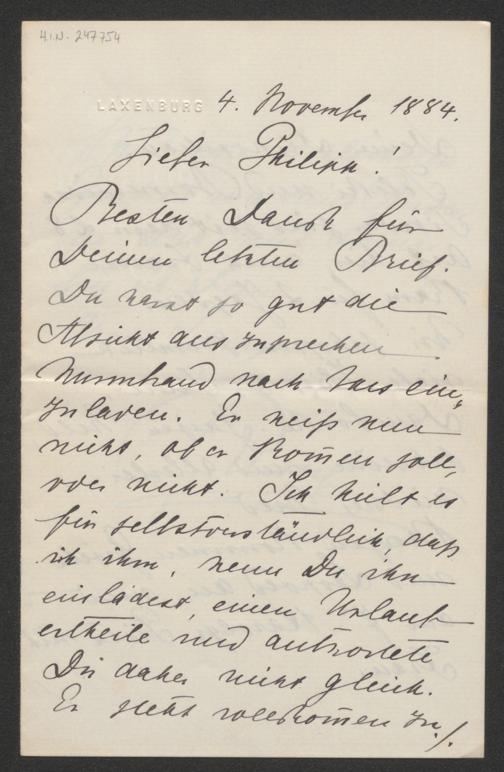 H.I.N.-247754
LAXENBURG 4. November 1884.
Lieber Philipp!
Besten Dank für
Deinen letzten Brief.
Du warst so gut die
Absicht auszusprechen
Wurmbrand nach ein„
zuladen. Er weiß nun
nicht, ob er kom̄en soll,
oder nicht. Ich hielt es
für selbstverständlich, daß
ich ihm, wenn Du ihn
einladest, einen Urlaub
ertheile und antwortete
Dir daher nicht gleich.
Er steht vollkom̄en zu ./.